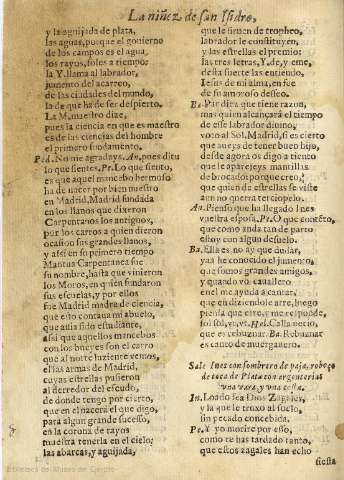 La niñez de san Isidro,
y la aguijada de plata,
las aguas, porque el gouierno
de los campos es el agua,
los rayos, soles a tiempo:
la Y. llama al labrador,
jumento del acarreo,
de las ciudades del mundo,
la de que ha de ser despierto.
La M, maestro dize,
pues la ciencia en que es maestro
es de las ciencias del hombre
el primero fundamento.
Ped. No me agradays. An. pues di tu
lo que sientes, Pe. Lo que siento,
es que aquel mancebo hermoso
ha de nacer por bien nuestro
en Madrid, Madrid fundada
en los llanos que dixeron
Carpentanos los antiguos,
por los carros a quien dieron
ocasion sus grandes llanos,
y assi en su primero tiempo
Mantua Carpentanea fue
su nombre, hasta que vinieron
los Moros, en quien fundaron
sus escuelas, y por ellos
fue Madrid madre de ciencia,
que esto contaua mi abuelo,
que auia sido estudiante,
assi que aquellos mancebos
con los bueyes son el carro
que al norte luziente vemos,
el las armas de Madrid,
cuyas estrellas pusieron
al derredor del escudo,
de donde tengo por cierto,
que en el nacerá el que digo,
para algun grande sucesso,
en la corona de rayos
muestra tenerla en el cielo:
las abarcas, y aguijada,
que le siruen de tropheo,
labrador le constituyen,
y las estrellas el premio:
las tres letras, Y, de, y eme,
desta suerte las entiendo,
Iesus de mi alma, en fee
de su amoroso desseo.
Ba. Par diez que tiene razon,
mas quien alcançará el tiempo
de esse labrador diuino,
voto al Sol, Madrid, si es cierto
que aueys de tener buen hijo,
desde agora os digo a tiento
que le aparejeys mantillas
de brocado, porque creo,
que quien de estrellas se viste
aun no querra terciopelo.
An. Pienso que ha llegado Ines
vuestra esposa, Pe. O que contẽto,
que como anda tan de parto
estoy con algun desuelo.
Ba. Ella es, no ay que dudar,
ya a he conocido el jumento,
que somos grandes amigos,
y quando vo cauallero
en el me ayuda a cantar,
que en diziendole arre, luego
piensa que cite, y me responde,
fol sol, vt, vt. Hel. Calla necio,
que es rebuznar. Ba. Rebuznar
es canto de muerganero.
Sale Ines con sombrero de paja, reboço
de toca de Plata con argenteria
vna vara, y vna cesta.
In. Loado sea Dios Zagales,
y la que le troxo al suelo,
sin pecado concebida.
Pe. Y yo morire por esso,
como te has tardado tanto,
que estos zagales han echo
siesta
Biblioteca del Museo del Ejército